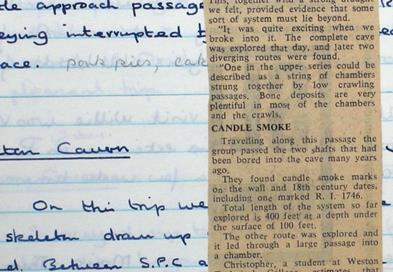 de approach passag
eying interrupted b
ace. pork pies, cak
tan Cavern
On this trip we
skeleton drawn up
d. Between S.P.C a
This, together with a strong draught
we felt, provided evidence that some
sort of system must lie beyond.
"It was quite exciting when we
broke into it. The complete cave
was explored that day, and later two
diverging routes were found.
"One in the upper series could be
described as a string of chambers
strung together by low crawling
passages. Bone deposits are very
plentiful in most of the chambers
and the crawls.
CANDLE SMOKE
Travelling along this passage the
group passed the two shafts that had
been bored into the cave many years
ago.
They found candle smoke marks
on the wall and 18th century dates,
including one marked R. I. 1746.
Total length of the system so far
explored is 400 feet at a depth under
the surface of 100 feet.
The other route was explored and
it led through a large passage into
a chamber.
Christopher, a student at Weston
estimates that